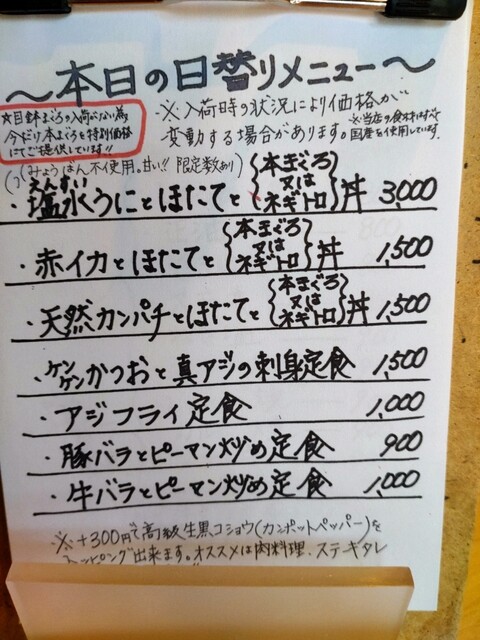 ～本日の日替りメニュー～
☆目鉢まぐろの入荷がない為
今だけ本まぐろを特別価格
にてご提供しています!!
※入荷時の状況により価格が
変動する場合があります。
※当店の食材はすべて
国産を使用しています。
(みょうばん不使用。甘い!! 限定数あり)
えんすい
・塩水うにとほたてと{本まぐろ又はネギトロ}丼 3,000
・赤イカとほたてと{本まぐろ又はネギトロ}丼 1,500
・天然カンパチとほたてと{本まぐろ又はネギトロ}丼 1,500
・ケンケンかつおと真アジの刺身定食 1,500
・アジフライ定食 1,000
・豚バラとピーマン炒め定食 900
・牛バラとピーマン炒め定食 1,000
※+300円で高級生黒コショウ(カンポットペッパー)を
トッピング出来ます。オススメは肉料理、ステーキタレ